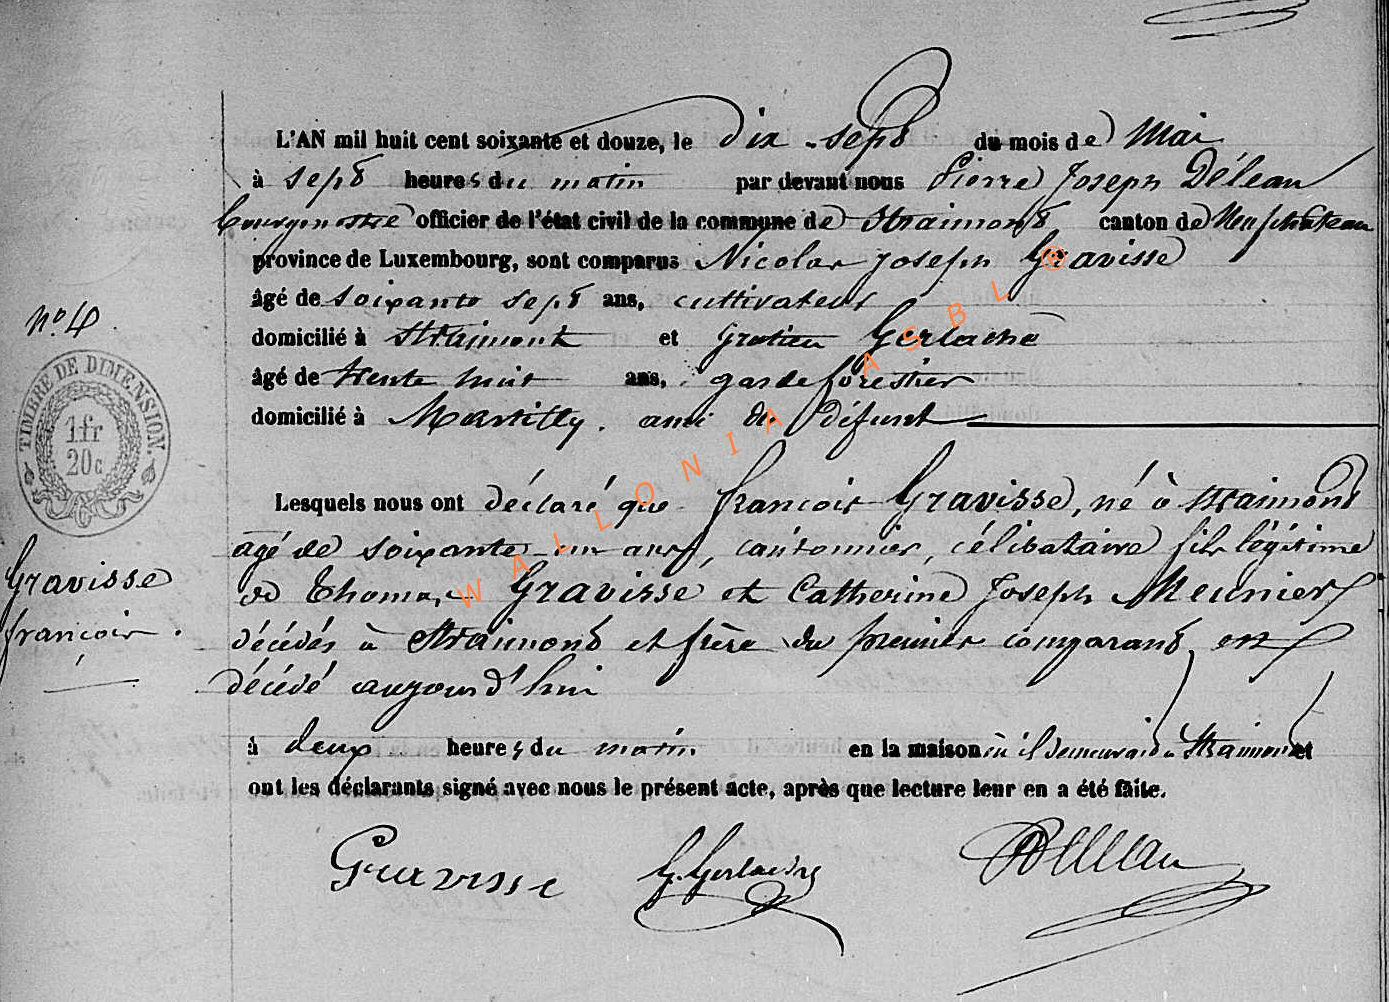 L'AN mil huit cent soixante et douze, le dix-sept du mois de Mai
à sept heures du matin par devant nous Pierre Joseph Déleau
bourgmestre officier de l'état civil de la commune de Straimont canton de Neufchâteau
province de Luxembourg, sont comparus Nicolas Joseph Gravisse
âgé de soixante sept ans, cultivateur
N° 4
domicilié à Straimont et Gratien Gerlache
âgé de trente huit ans, garde forestier
domicilié à Martilly. ami du défunt
TIMBRE DE DIMENSION.
1fr
20c
WALLONIA ASBL ®
Lesquels nous ont déclaré que françois Gravisse, né à Straimont
âgé de soixante-un ans, cantonnier, célibataire fils légitime
Gravisse
françois.
de Thomas Gravisse et Catherine Joseph Meunier
décédés à Straimont et frère du premier comparant, est
décédé aujourd'hui
à deux heures du matin en la maison où il demeurait à Straimont et
ont les déclarants signé avec nous le présent acte, après que lecture leur en a été faite.
Gravisse G. Gerlache PJDéleau